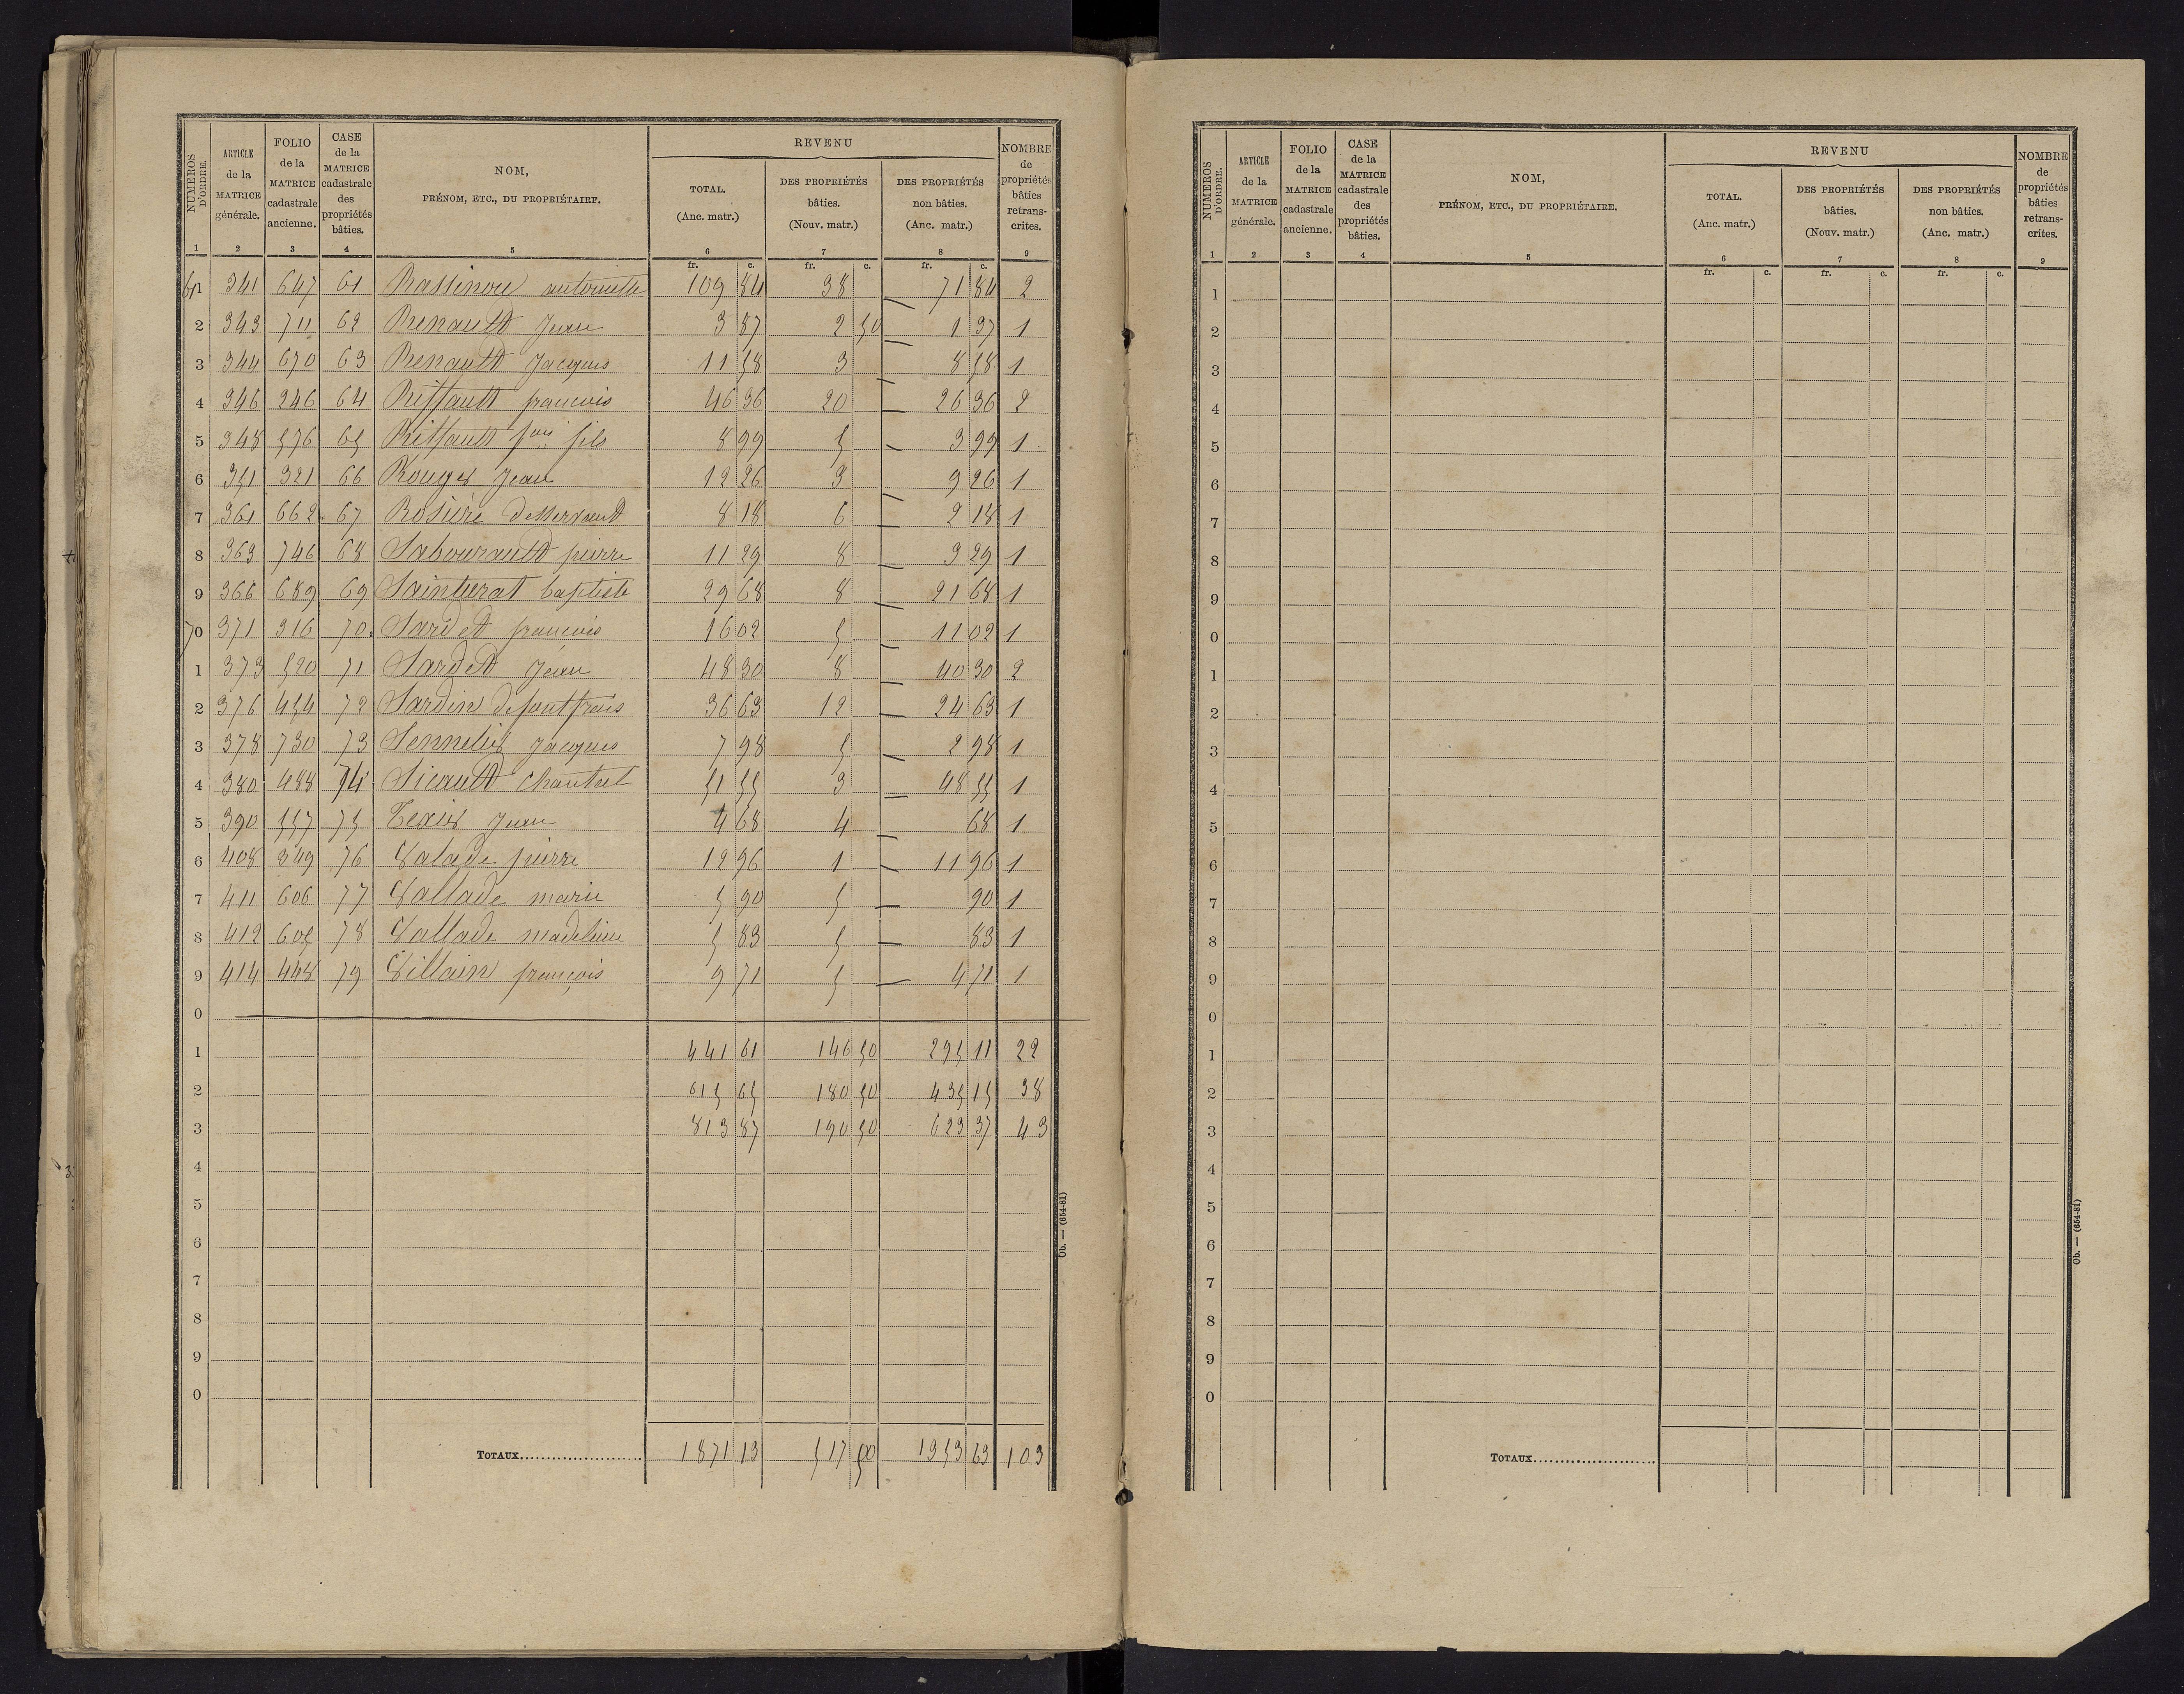 NUMÉROS D'ORDRE. | ARTICLE de la MATRICE générale. | FOLIO de la MATRICE cadastrale ancienne. | CASE de la MATRICE cadastrale des propriétés bâties. | NOM, PRÉNOM, ETC., DU PROPRIÉTAIRE. | REVENU | NOMBRE de propriétés bâties retranscrites.
TOTAL. (Anc. matr.) | DES PROPRIÉTÉS bâties. (Nouv. matr.) | DES PROPRIÉTÉS non bâties. (Anc. matr.)
1 | 2 | 3 | 4 | 5 | 6 | 7 | 8 | 9
fr. c. | fr. c. | fr. c.
61 | 341 | 647 | 61 | antoinette | 109 84 | 38 | 71 84 | 2
2 | 343 | 711 | 62 | Renault Jean | 3 87 | 2 50 | 1 37 | 1
3 | 344 | 670 | 63 | Renault Jacques | 11 58 | 3 | 8 58 | 1
4 | 346 | 246 | 64 | Riffault francois | 46 36 | 20 | 26 36 | 2
5 | 348 | 576 | 65 | Riffault fois fils | 8 99 | 5 | 3 99 | 1
6 | 351 | 321 | 66 | Rouger Jean | 12 26 | 3 | 9 26 | 1
7 | 361 | 662 | 67 | Rosière | 8 18 | 6 | 2 18 | 1
8 | 363 | 746 | 68 | Sabourault pierre | 11 29 | 8 | 3 29 | 1
9 | 366 | 689 | 69 | baptiste | 29 68 | 8 | 21 68 | 1
70 | 371 | 316 | 70 | Sardet francois | 16 02 | 5 | 11 02 | 1
1 | 373 | 520 | 71 | Sardet Jean | 48 30 | 8 | 40 30 | 2
2 | 376 | 454 | 72 | Sardin | 36 63 | 12 | 24 63 | 1
3 | 378 | 730 | 73 | Sennelier Jacques | 7 98 | 5 | 2 98 | 1
4 | 380 | 488 | 74 | Sicault Chantal | 51 55 | 3 | 48 55 | 1
5 | 390 | 557 | 75 | Texier Jean | 4 68 | 4 | 68 | 1
6 | 408 | 349 | 76 | Valade pierre | 12 96 | 1 | 11 96 | 1
7 | 411 | 606 | 77 | Vallade marie | 5 90 | 5 | 90 | 1
8 | 412 | 605 | 78 | Vallade madeleine | 5 83 | 5 | 83 | 1
9 | 414 | 448 | 79 | Villain françois | 9 71 | 5 | 4 71 | 1
0
1 | 441 61 | 146 50 | 295 11 | 22
2 | 615 65 | 180 50 | 435 15 | 38
3 | 813 87 | 190 50 | 623 37 | 43
4
5
6
7
8
9
0
TOTAUX | 1871 13 | 517 50 | 1353 63 | 103
Ob. — (654-81)
NUMÉROS D'ORDRE. | ARTICLE de la MATRICE générale. | FOLIO de la MATRICE cadastrale ancienne. | CASE de la MATRICE cadastrale des propriétés bâties. | NOM, PRÉNOM, ETC., DU PROPRIÉTAIRE. | REVENU | NOMBRE de propriétés bâties retranscrites.
TOTAL. (Anc. matr.) | DES PROPRIÉTÉS bâties. (Nouv. matr.) | DES PROPRIÉTÉS non bâties. (Anc. matr.)
1 | 2 | 3 | 4 | 5 | 6 | 7 | 8 | 9
fr. c. | fr. c. | fr. c.
1
2
3
4
5
6
7
8
9
0
1
2
3
4
5
6
7
8
9
0
1
2
3
4
5
6
7
8
9
0
TOTAUX
Ob. — (654-81)